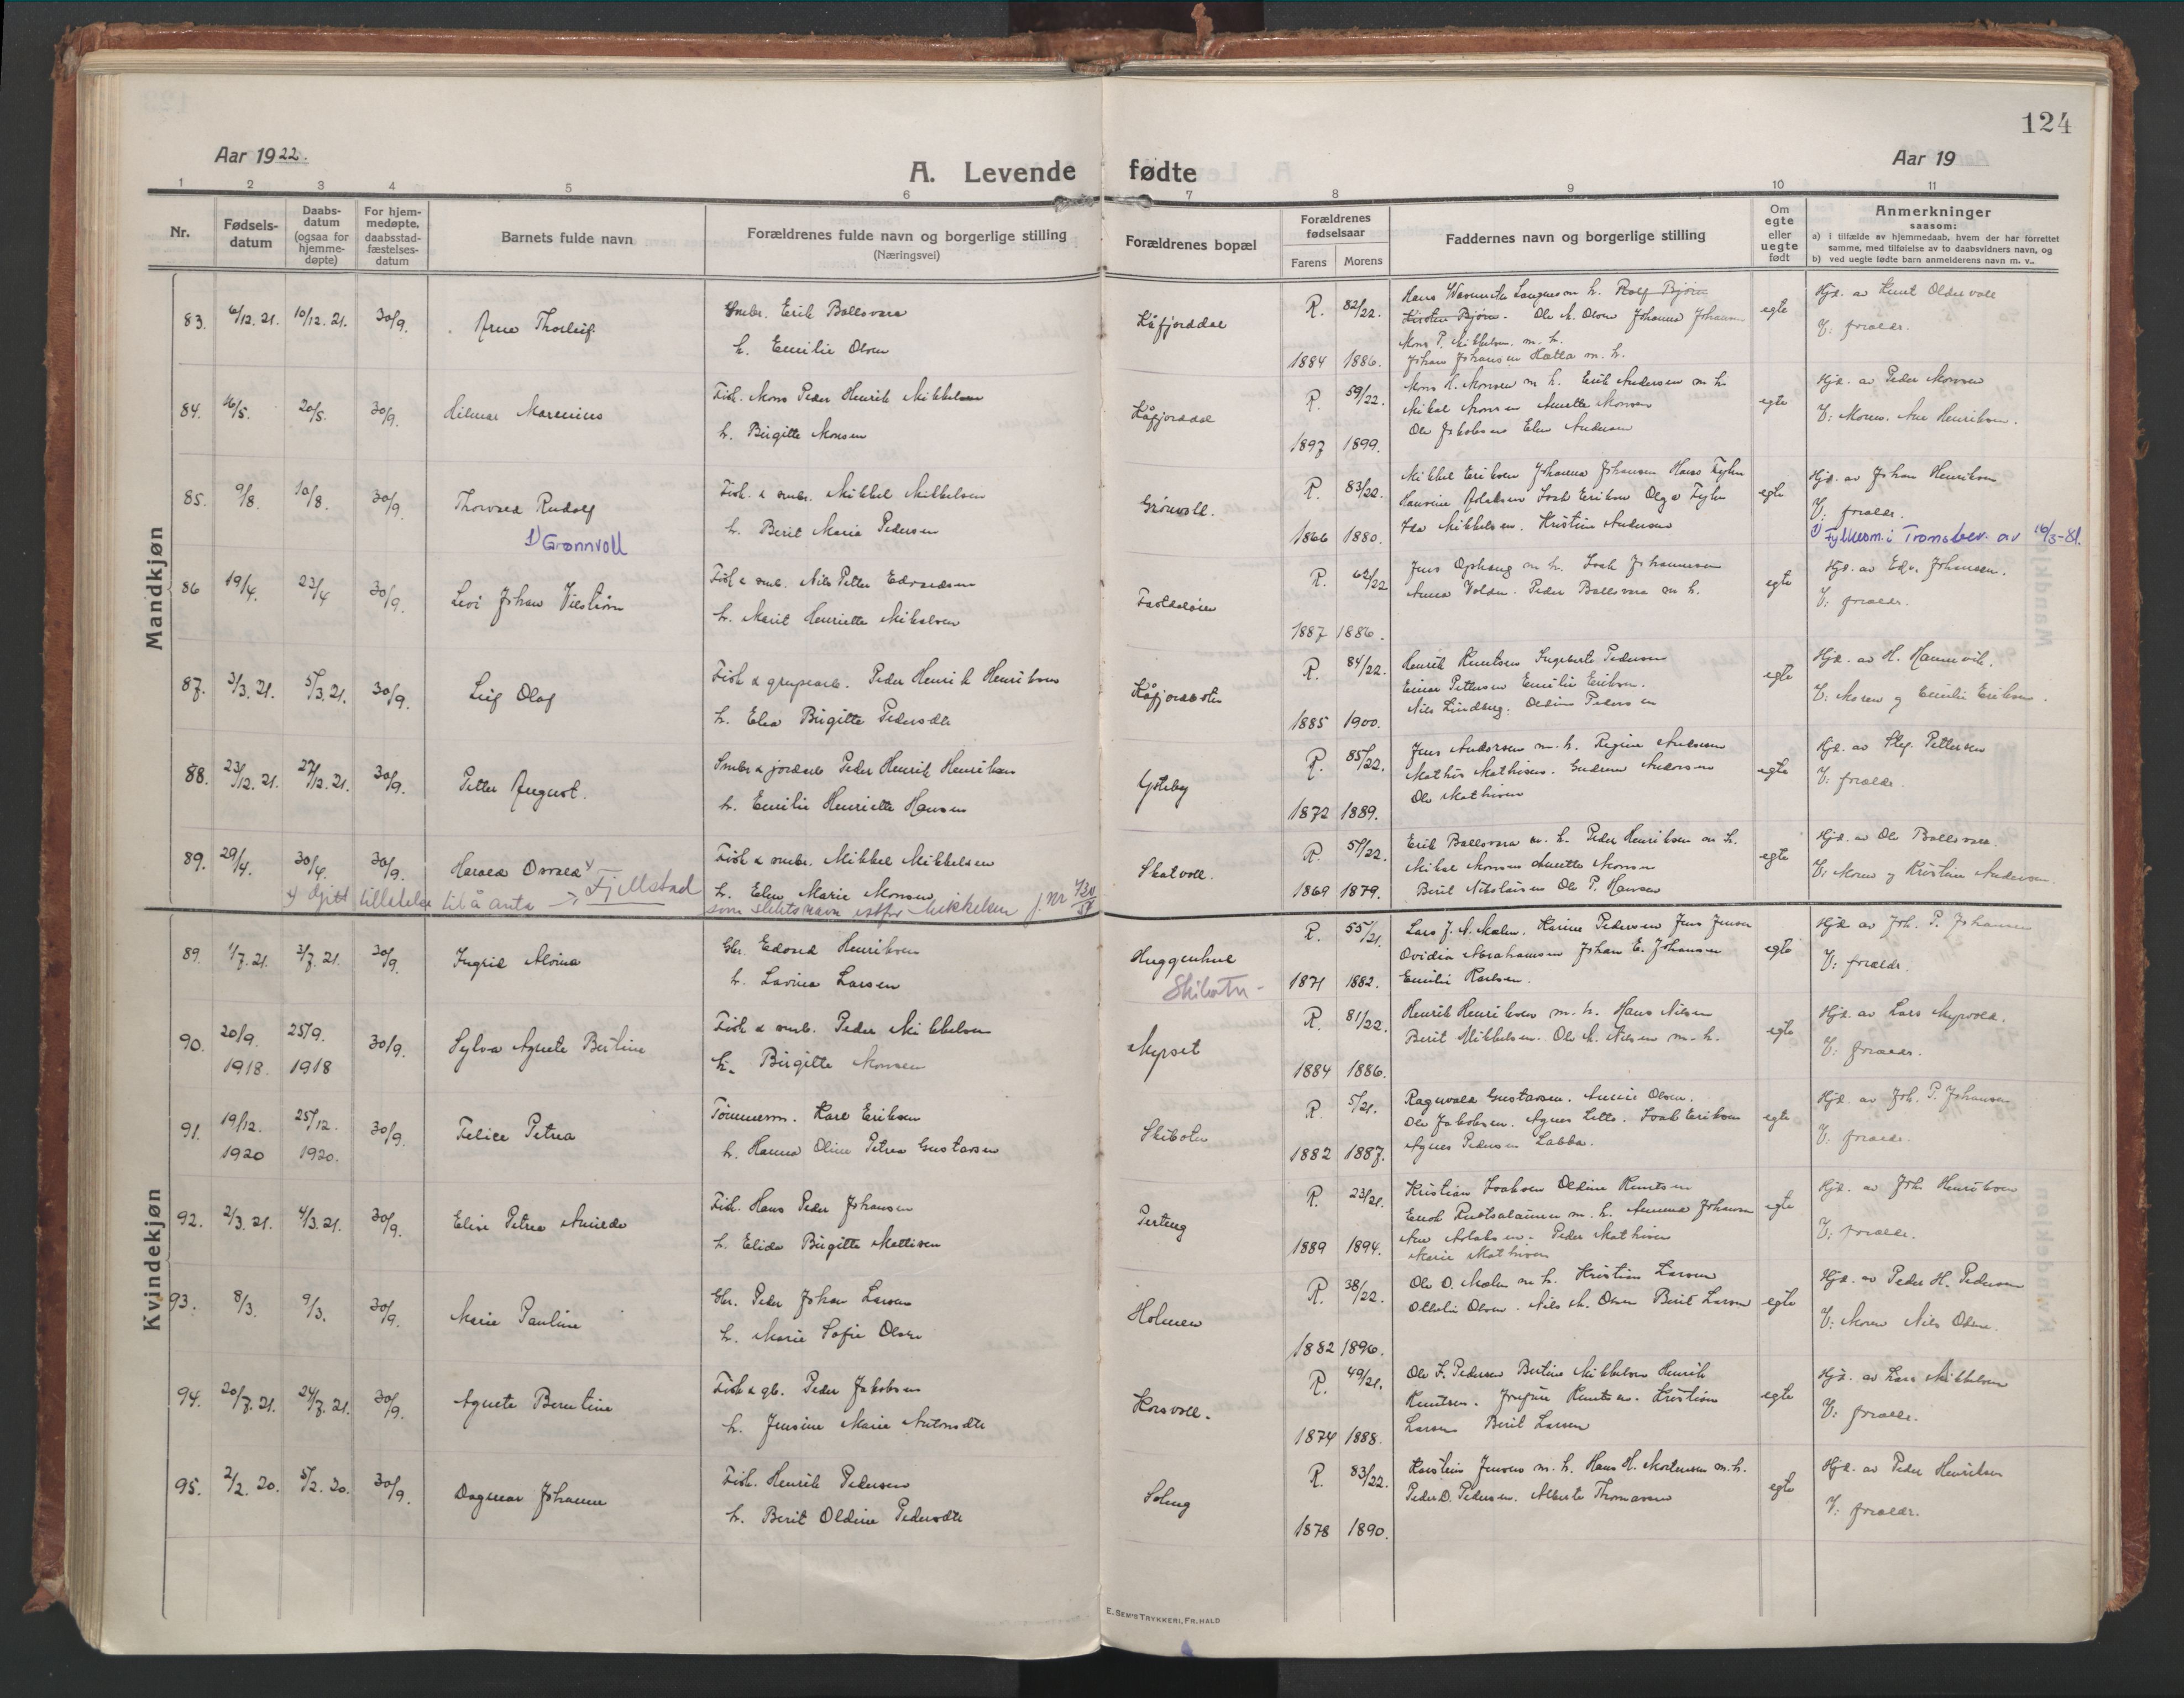 124
Aar 1922.
A. Levende fødte
Aar 19
1 2 3 4 5 6 7 8 9 10 11
Nr.
Fødsels-
datum
Daabs-
datum
(ogsaa for
hjemme-
døpte)
For hjem-
medøpte,
daabsstad-
fæstelses-
datum
Barnets fulde navn
Forældrenes fulde navn og borgerlige stilling
(Næringsvei)
Forældrenes bopæl
Forældrenes
fødselsaar
Farens Morens
Faddernes navn og borgerlige stilling
Om
egte
eller
uegte
født
Anmerkninger
saasom:
a) i tilfælde av hjemmedaab, hvem der har forrettet
samme, med tilføielse av to daabsvidners navn, og
b) ved uegte fødte barn anmelderens navn m. v..
Mandkjøn
83. 6/12. 21. 10/12. 21. 30/9. Arne Thorleif
Smbr. Erik Ballovara
h. Emilie Olsen
Kåfjorddal
R. 82/22.
1884 1886.
Ole M. Olsen Johanna Johansen
Mons P. Mikkelsen m. h.
Johan Johansen Hætta m. h.
egte
Hjd. av Knut Oldervoll
V: foreldr.
84. 16/5. 20/5. 30/9. Hilmar Marenius
Fisk. Mons Peder Henrik Mikkelsen
h. Birgitte Monsen
Kåfjorddal
R. 59/22.
1897 1899.
Mons H. Monsen m h. Erik Andersen m h.
Mikal Monsen Anette Monsen
Ole Jakobsen Elen Andersen
egte
Hjd. av Peder Monsen
V: Moren. Ane Henriksen.
85. 9/8. 10/8. 30/9. Thorvald Rudolf
1) Grønnvoll
Fisk. & smbr. Mikkel Mikkelsen
h. Berit Maria Pedersen
Grønvoll.
R. 83/22.
1866 1880.
Mikkel Eriksen Johanna Johansen Hans
Isak Eriksen Olga
Mikkelsen. Kristine Andersen
egte
Hjd. av Johan Henriksen
V: foreldr.
1) Fylkesm. i Troms bev. av 16/3-81.
86 19/4. 23/4 30/9. Levi Johan
Fisk & smb. Nils Petter Edvardsen
h. Marit Henriette Mikalsen
R. 62/22
1887 1886.
Jens Ophaug m. h. Isak Johannesen
Anna Volden. Peder Ballovara m h.
egte
Hjd. av Edv. Johansen.
V: foreldr.
87. 3/3. 21. 5/3. 21. 30/9. Leif Olaf
Fisk & grubearb. Peder Henrik Henriksen
h. Elea Birgitte Pedersdtr
Kåfjordbotn
R. 84/22.
1885 1900.
Henrik Knutsen Ingeborg Pedersen
Einar Pettersen Emilie Eriksen.
Nils Lindberg. Oldine Pedersen
egte
Hjd. av H. Hannevik.
V. Moren og Emilie Eriksen.
88. 23/12. 21. 27/12. 21. 30/9. Petter August.
Smbr & jordarb Peder Henrik Henriksen
h. Emilie Henriette Hansen
R. 85/22.
1872 1889.
Jens Andersen m. h. Regine Andersen
Mathis Mathisen. Gudrun Andersen
Ole Mathisen
egte
Hjd. av Pettersen
V: foreldr.
89. 29/4. 30/4. 30/9. Harald Osvald x)
x) Gitt tillatelse til å anta → Fjellstad
Fisk & smbr. Mikkel Mikkelsen
h. Elen Marie Monsen
som slektsnavn istfor Mikkelsen j. nr 430/51
Skatvoll.
R. 57/22.
1869 1879.
Erik Ballovara m. h. Peder Henriksen m h.
Mikal Monsen Anette Monsen
Berit Nikolaisen Ole P. Hansen
egte
Hjd. av Ole Ballovara.
V: Moren og Kristine Andersen.
Kvindekjøn
89. 1/7. 21. 3/7. 21. 30/9 Ingrid Alvina
Gbr. Edvard Henriksen
h. Lavina Larsen
Skibotn -
R. 55/21.
1871 1882.
Karine Pedersen Jens Jensen
Ovidia Abrahamsen Johan E. Johansen
Emilie Karlsen.
egte
Hjd av Joh. P. Johansen
V: foreldr.
90. 20/9. 1918. 25/9. 1918 30/9. Sylva Agnete Bertine
Fisk & smb. Peder Mikkelsen
h. Birgitte Monsen
R. 81/22.
1884 1886.
Henrik Henriksen m. h. Hans Nilsen
Berit Mikkelsen. Ole M. Nilsen m. h.
egte
Hjd. av Lars Myrvold.
V: foreldr.
91. 19/12. 1920 25/12. 1920. 30/9. Felice Petrea
Tømmerm. Karl Eriksen
h. Hanna Oline Petrea Gustavsen
Skibotn
R. 5/21.
1882 1887.
Ragnvald Gustavsen. Annie Olsen.
Ole Jakobsen. Agnes Lette. Isak Eriksen
Agnes Pedersen Labba.
egte
Hjd. av Joh. P. Johansen
V: foreldr.
92. 2/3. 21. 4/3. 21. 30/9. Elise Petrea Amilda
Fisk. Hans Peder Johansen
h. Elida Birgitte Mattisen
R. 23/21.
1889 1894.
Kristian Isaksen Oldine Knutsen
Anna Johansen
Peder Mathisen
Marie Mathisen
egte
Hjd. av Joh. Henriksen
V: foreldr.
93. 8/3. 9/3. 30/9. Marie Pauline
Gbr. Peder Johan Larsen
h. Marie Sofie Olsen
Holmen
R. 38/22.
1882 1896.
Ole O. Malen m h. Kristian Larsen
Ottelie Olsen. Nils M. Olsen Berit Larsen
egte
Hjd. av Peder H. Pedersen
V: Moren Nils Olsen.
94. 20/7. 21. 24/7. 21. 30/9. Agnete Berntine
Fisk & gb. Peder Jakobsen
h. Jensine Marie Antonsdtr
Horsvoll.
R. 49/21.
1874 1888.
Ole L. Pedersen Bertine Mikkelsen Henrik
Knutsen. Josefine Knutsen. Kristian
Larsen Berit Larsen
egte
Hjd. av Lars Mikkelsen
V: foreldr.
95. 2/2. 20. 5/2. 20. 30/9. Dagmar Johanne
Fisk. Henrik Pedersen
h. Berit Oldine Pedersdtr
R. 83/22.
1878 1890.
Karstine Jensen m. h. Hans H. Mortensen m. h.
Peder D. Pedersen. Alberte Thomassen
egte
Hjd. av Peder Henriksen
V: foreldr.
E. SEM'S TRYKKERI, FR.HALD